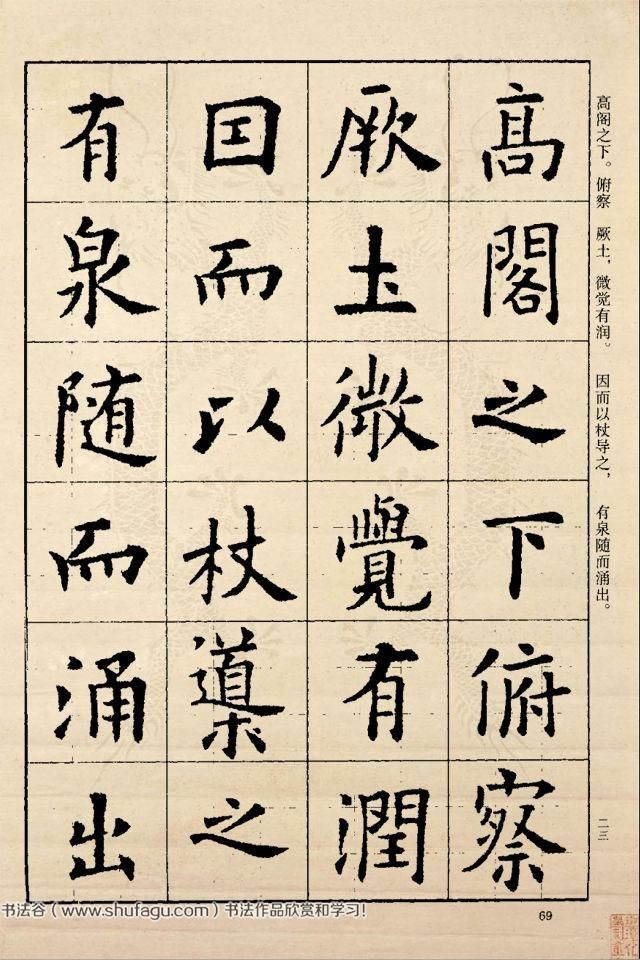 高閣之下俯察
厥土微覺有潤
因而以杖導之
有泉随而涌出
高阁之下。俯察 厥土，微觉有润。 因而以杖导之， 有泉随而涌出。
二三
69
书法谷（www.shufagu.com）书法作品欣赏和学习！